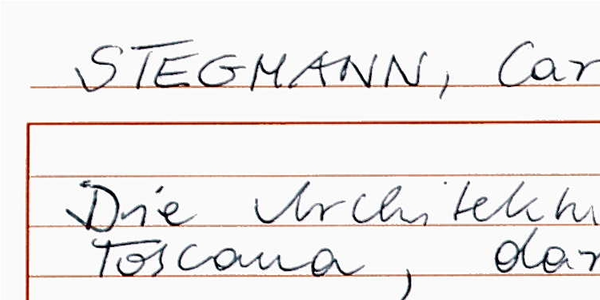 STEGMANN, Car
Die Architektu
Toscana, dar